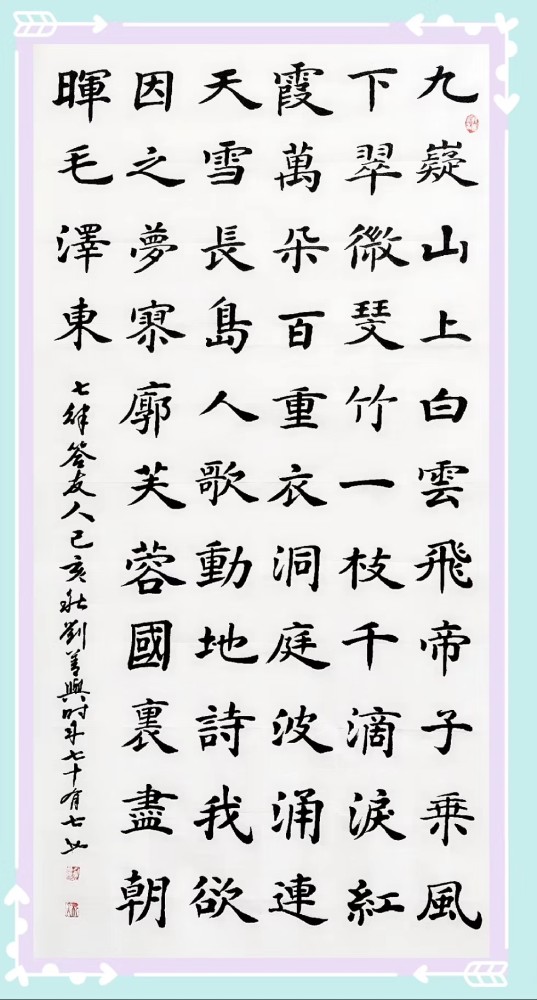 九嶷山上白雲飛帝子乘風
下翠微斑竹一枝千滴淚紅
霞萬朵百重衣洞庭波涌連
天雪長島人歌動地詩我欲
因之夢寥廓芙蓉國裏盡朝
暉毛澤東
七律答友人己亥秋劉善興时年七十有七